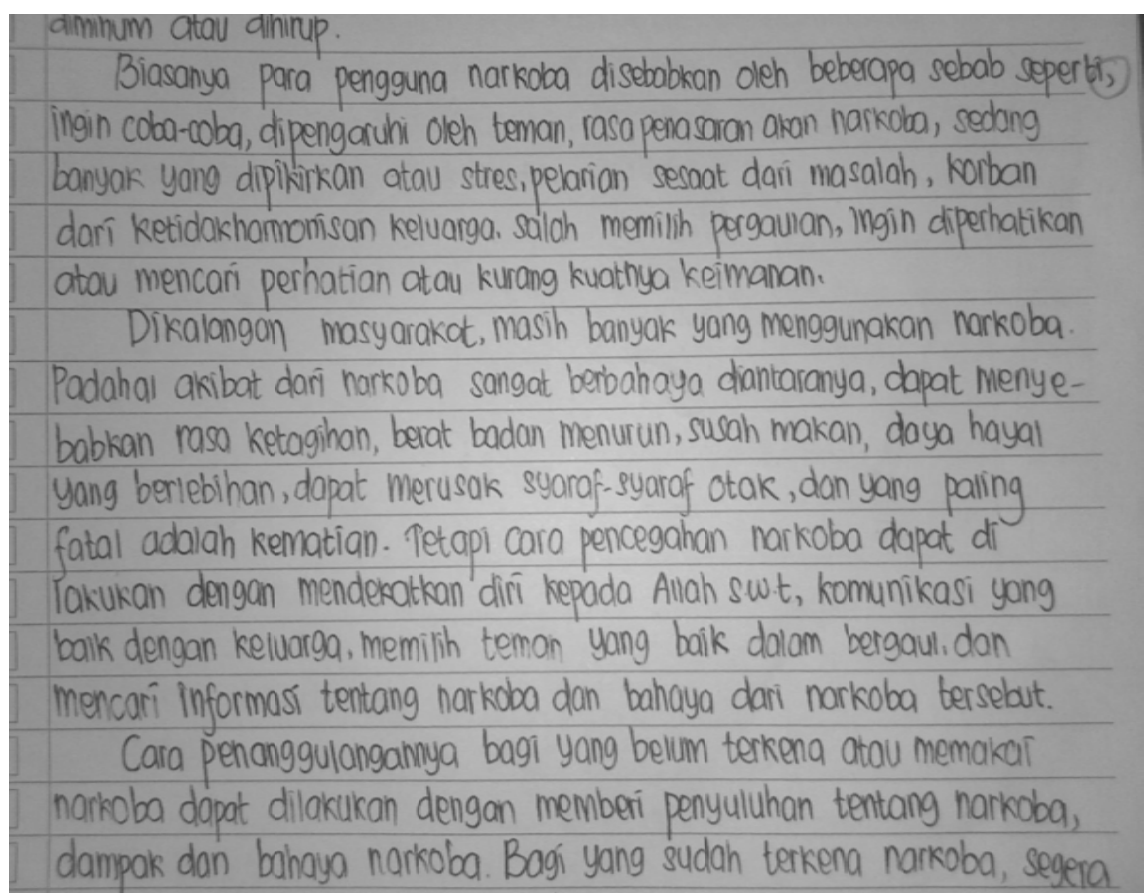 diminum atau dihirup.
Biasanya para pengguna narkoba disebabkan oleh beberapa sebab seperti,
ingin coba-coba, dipengaruhi oleh teman, rasa penasaran akan narkoba, sedang
banyak yang dipikirkan atau stres, pelarian sesaat dari masalah, korban
dari ketidakharmonisan keluarga, salah memilih pergaulan, ingin diperhatikan
atau mencari perhatian atau kurang kuatnya keimanan.
Dikalangan masyarakat, masih banyak yang menggunakan narkoba.
Padahal akibat dari narkoba sangat berbahaya diantaranya, dapat menye-
babkan rasa ketagihan, berat badan menurun, susah makan, daya hayal
yang berlebihan, dapat merusak syaraf-syaraf otak, dan yang paling
fatal adalah kematian. Tetapi cara pencegahan narkoba dapat di
lakukan dengan mendekatkan diri kepada Allah swt, komunikasi yang
baik dengan keluarga, memilih teman yang baik dalam bergaul, dan
mencari informasi tentang narkoba dan bahaya dari narkoba tersebut.
Cara penanggulangannya bagi yang belum terkena atau memakai
narkoba dapat dilakukan dengan memberi penyuluhan tentang narkoba,
dampak dan bahaya narkoba. Bagi yang sudah terkena narkoba, segera